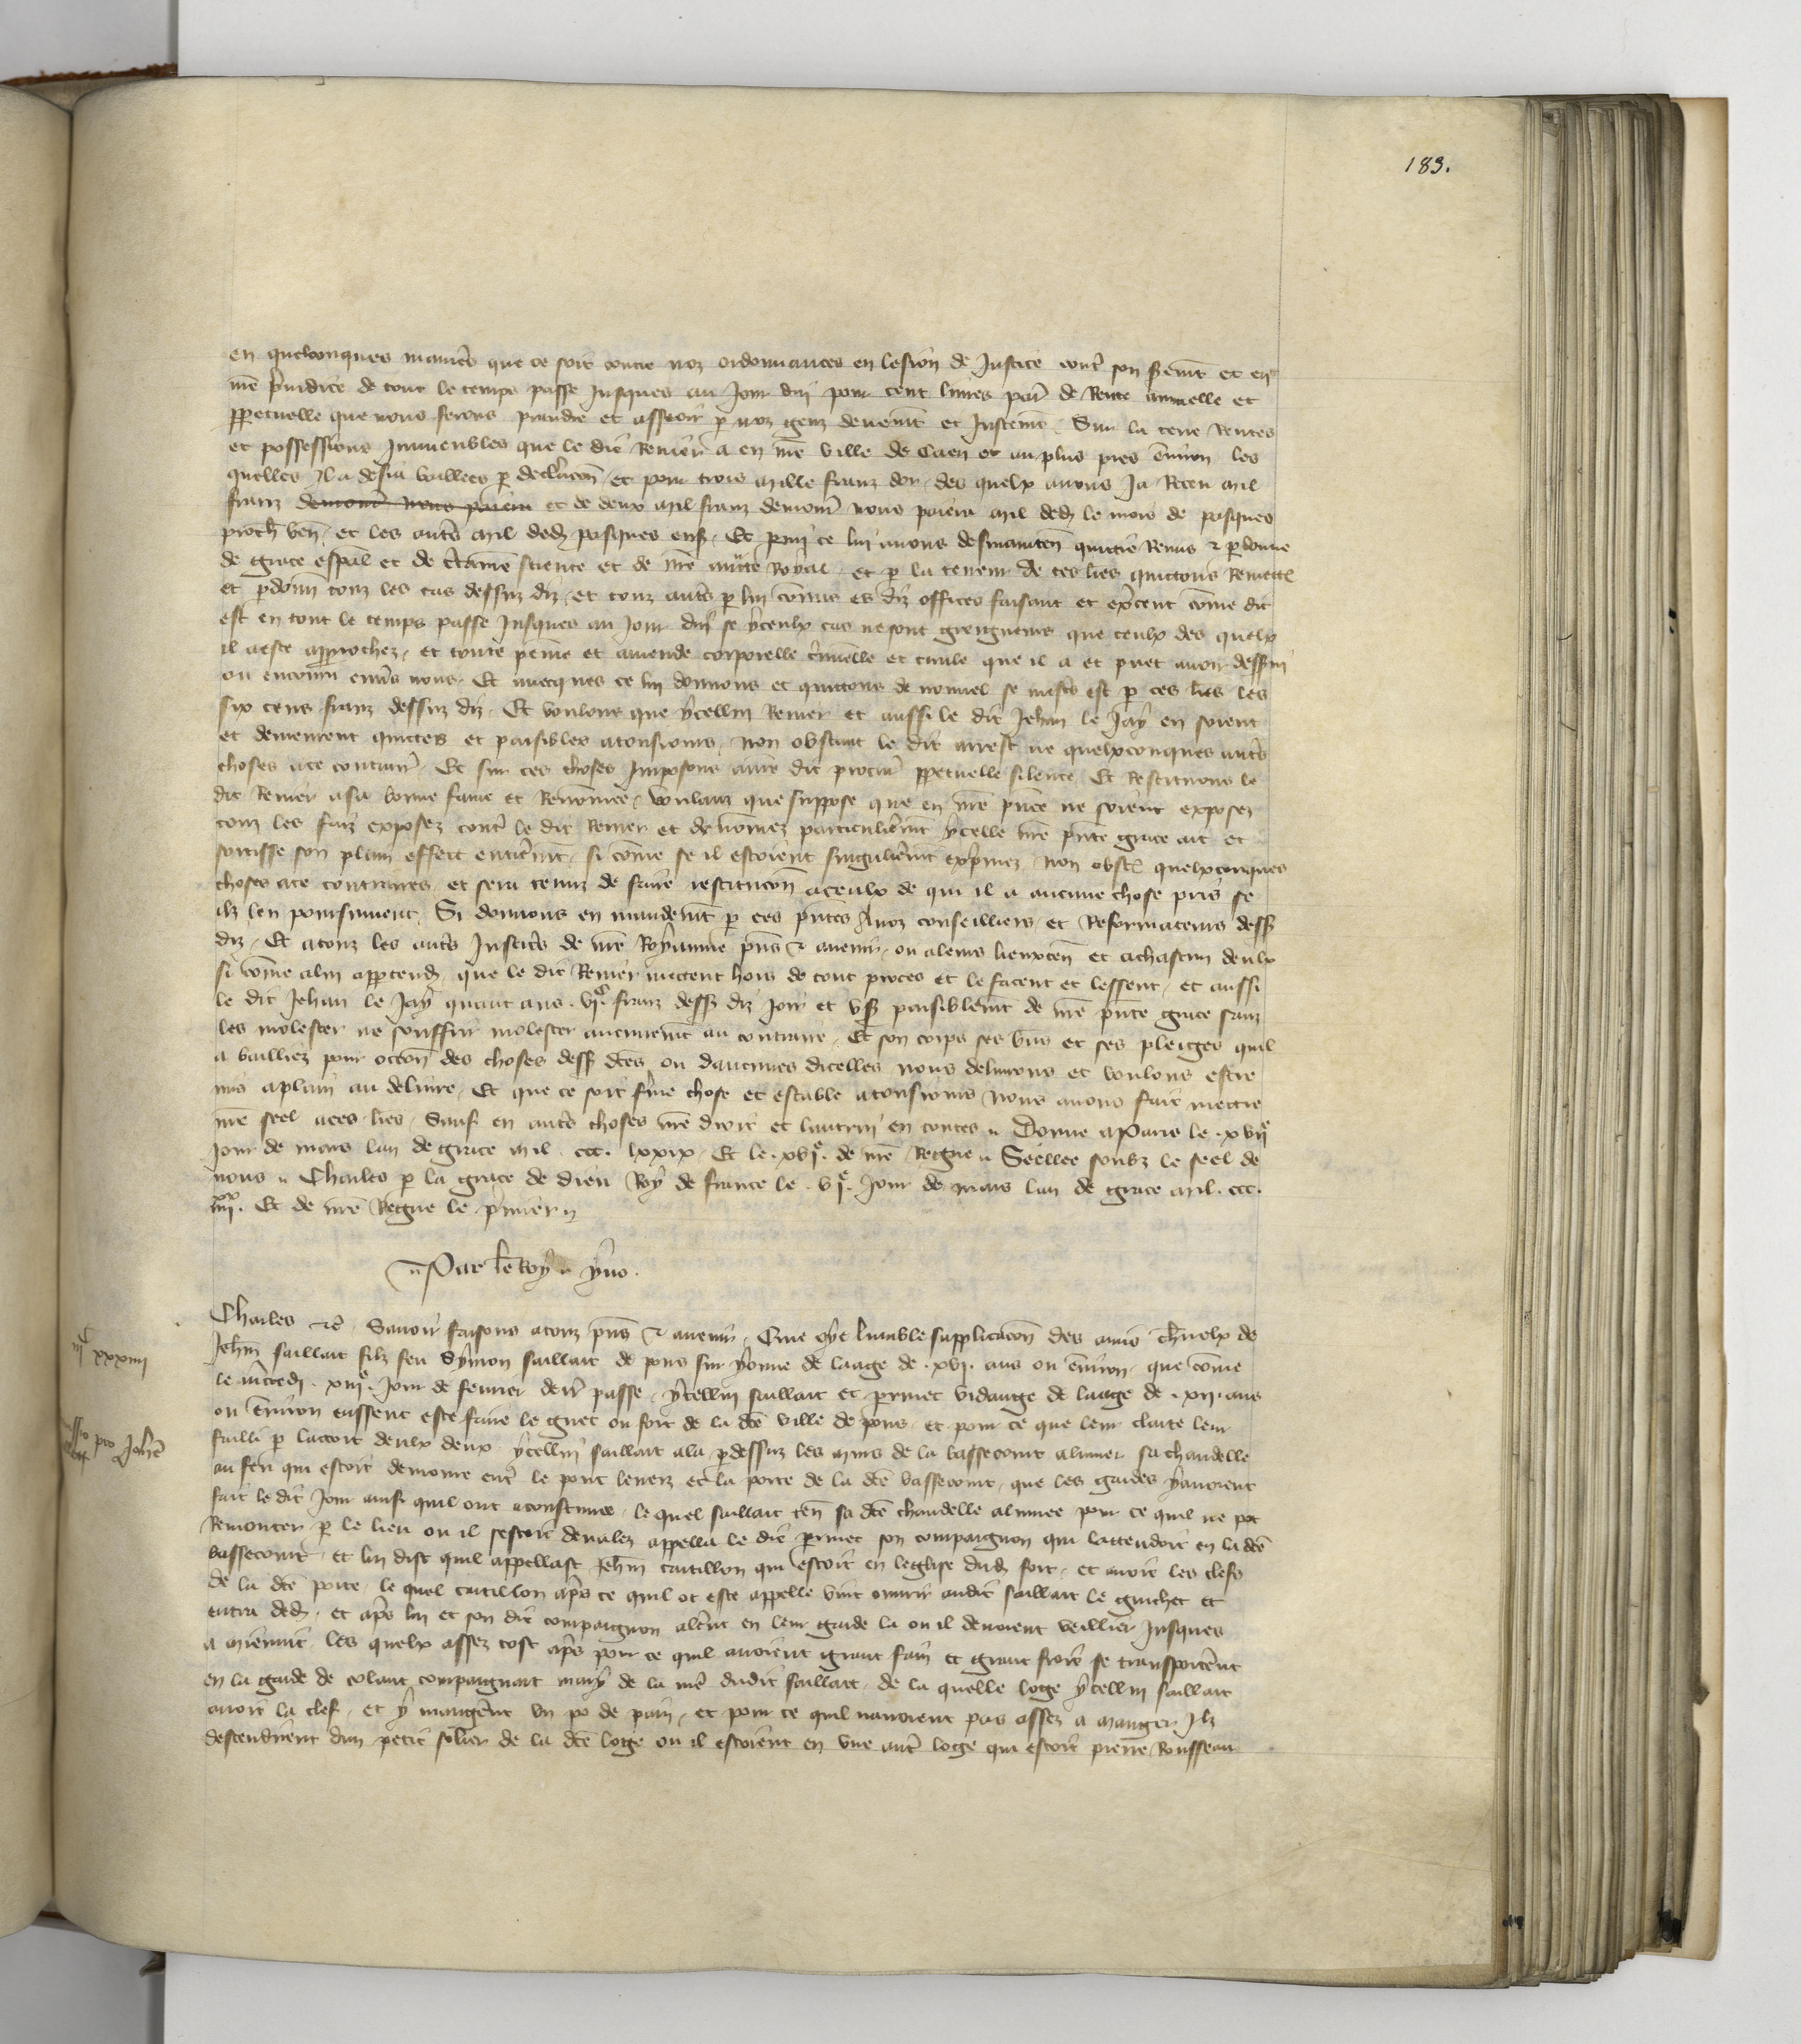 183.
en quelconques manieres que ce soit contre noz ordonnances en lesion de Justice contr son seremt et en
nre preiudice de tout le temps passe Jusques au Jour dui pour cent liures par de Rente annuelle et
ppetuelle que nous ferons prandre et asseoir p noz genz deuemt et Justemt. Sur la terre Rentes
et possessions Inmeubles que le dit Renier a en nre ville de Caen et au plus pres enuiron les
quelles Il a desia baillees p declaracon. et pour trois mille franz dor. des quelx auons Ja Receu mil
franz demour nous paiera et de deux mil franz demour nous paiera mil dedz le mois de pasques
proch ven. et les autres mil dedz pasques ens. Et pmi ce lui auons desmainten quittie Remis & pdonne
de grace espal et de certaine science et de nre auctte Royal. et p la teneur de ces lres quittons Remett
et pdonn touz les cas dessuz diz. et touz autres p lui commis es diz offices faisant et excent come dit
est en tout le temps passe Jusques au Jour dui se yceulx cas ne sont greigneurs que ceulx des quelx
il a este approchez. et toute peine et amende corporelle criminelle et ciuile que il a et puet auoir desserui
ou encouru enuers nous. Et auecques ce lui donnons et quittons de nouuel se mestr est p ces lres les
six cens franz dessuz diz. Et voulons que ycellui Renier et aussi le dit Jehan le Jay en soient
et demeurent quittes et paisibles a tousiours. non obstant le dit arrest ne quelxconques autres
choses a ce contrair. Et sur ces choses Imposons a nre dit procur ppetuelle silence. Et Restituons le
dit Renier a sa bonne fame et Renommee. voulanz que suppose que en nre pnte ne soient exposez
touz les faiz exposez contr le dit Renier et denommez particulierment ycelle nre pnte grace ait et
sortisse son plain effect entierment. si come se il estoient singulierment exprimez. non obst quelxconques
choses a ce contraires. et sera tenuz de faire restitucon a ceulx de qui il a aucune chose pris se
ilz len poursuiuent. Si donnons en mandemt p ces pntes A noz conseilliers. et Reformateurs dess
diz. Et a touz les autres Justicrs de nre Royaume pns & auenir. ou a leurs lieuxten et a chascun deulx
si come a lui apptendr. que le dit Renier mettent hors de tout proces et le facent et lessent. et aussi
le dit Jehan le Jay quant aus . vic. franz dess diz Joir et vser paisiblemt de nre pnte grace sanz
les molester ne souffrir molester aucunemt au contraire. Et son corps ses biens et ses pleiges quil
a bailliez pour occon des choses dess dces ou daucunes dicelles nous deliurons et voulons estre
mis a plain au deliure. Et que ce soit ferme chose et estable a tousiours nous auons fait mettre
nre seel a ces lres. Sauf en autres choses nre droit et lautrui en toutes. Donne a Paris le . xviie
Jour de mars lan de grace mil . ccc. lxxix. Et le . xvie. de nre Regne. Seellee soubz le seel de
nous. Charles p la grace de dieu Roy de france le . vie. Jour de mars lan de grace mil . ccc.
iiiixx. Et de nre Regne le premier.
Par le Roy. yuo.
Charles &c. Sauoir faisons a touz pns & auenir. Que oye lumble supplicacon des amis charnelx de
Jehn saillart filz feu Symon saillart de pons sur yonne de laage de . xvi. ans ou enuiron. que come
le mcredi . xiiie. Jour de feurier derr passe. ycellui saillart et perinet vidange de laage de . xii. ans
ou enuiron eussent este faire le guet ou fort de la dce ville de pons. et pour ce que leur clarte leur
failli p lacort deulx deux. ycellui saillart ala pdessuz les murs de la bassecourt alumer sa chandelle
au feu qui estoit demoure entr le pont leueiz et la porte de la dce bassecourt. que les gardes y auoient
fait le dit Jour ainsi quil ont acoustume. le quel saillart ten sa dce chandelle alumee pour ce quil ne pot
Remonter p le lieu ou il sestoit deualez appella le dit perinet son compaignon qui lattendoit en la dce
bassecourt. et lui dist quil appellast Jehn catillon qui estoit en leglise dudt fort. et auoit les clefs
de la dce porte. le quel catillon apres ce quil ot este appelle vint ouurir audit saillart le guichet et
entra dedz. et apres lui et son dit compaignon alerent en leur garde la ou il deuoient veillier Jusques
a mienuit. les quelx assez tost apres pour ce quil auoient grant fain et grant froit se transporterent
en la garde de colart compaignart mary de la mere dudit saillart. de la quelle loge ycellui saillart
auoit la clef. et y mangerent vn po de pain. et pour ce quil nauoient pas assez a manger Ilz
descendirent dun petit solier de la dce loge ou il estoient en vne autr loge qui estoit pierre Rousseau
iiic xxxiiii
pro Johne